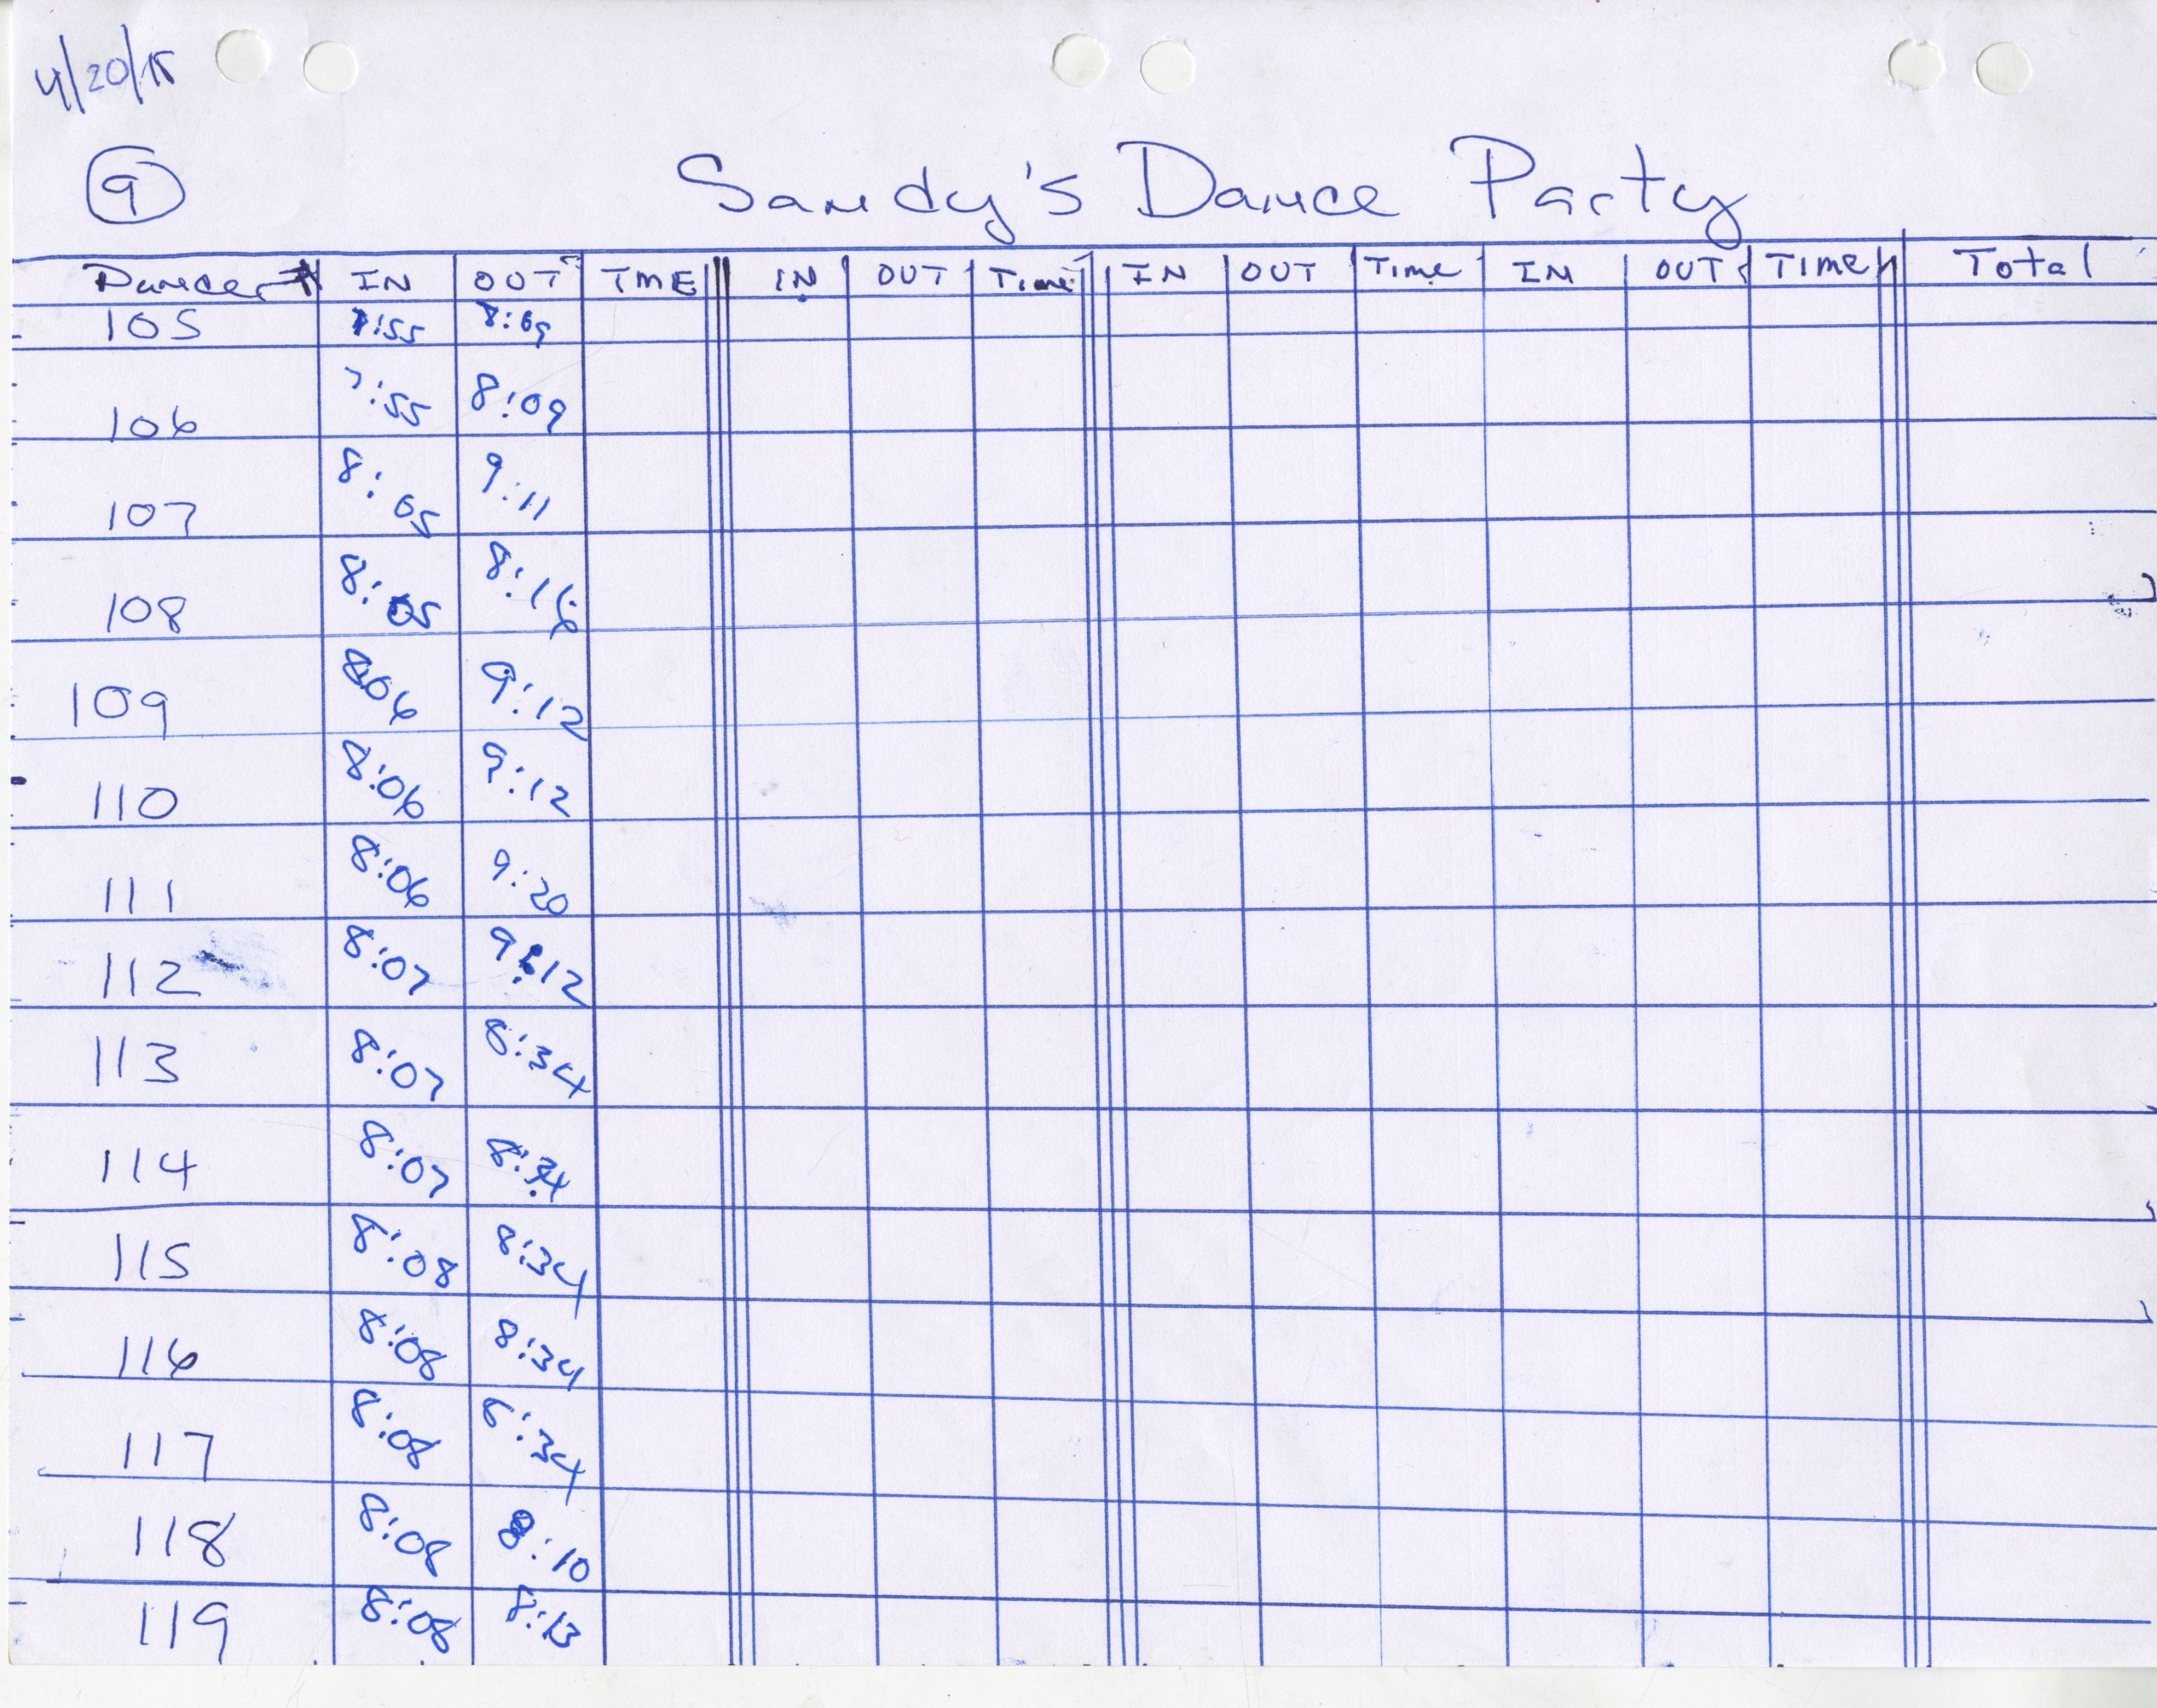 4/20/15
9
Sandy's Dance Party
Dancer # IN OUT TME IN OUT Time IN OUT Time IN OUT TIME Total
105 7:55 8:09
106 7:55 8:09
107 8:05 9:11
108 8:05
109 806 9:12
110 8:06 9:12
111 8:06 9:20
112 8:07 9:12
113 8:07 8:34
114 8:07 8:34
115 8:08 8:34
116 8:08 8:34
117 8:08 8:34
118 8:08 8:10
119 8:08 8:13